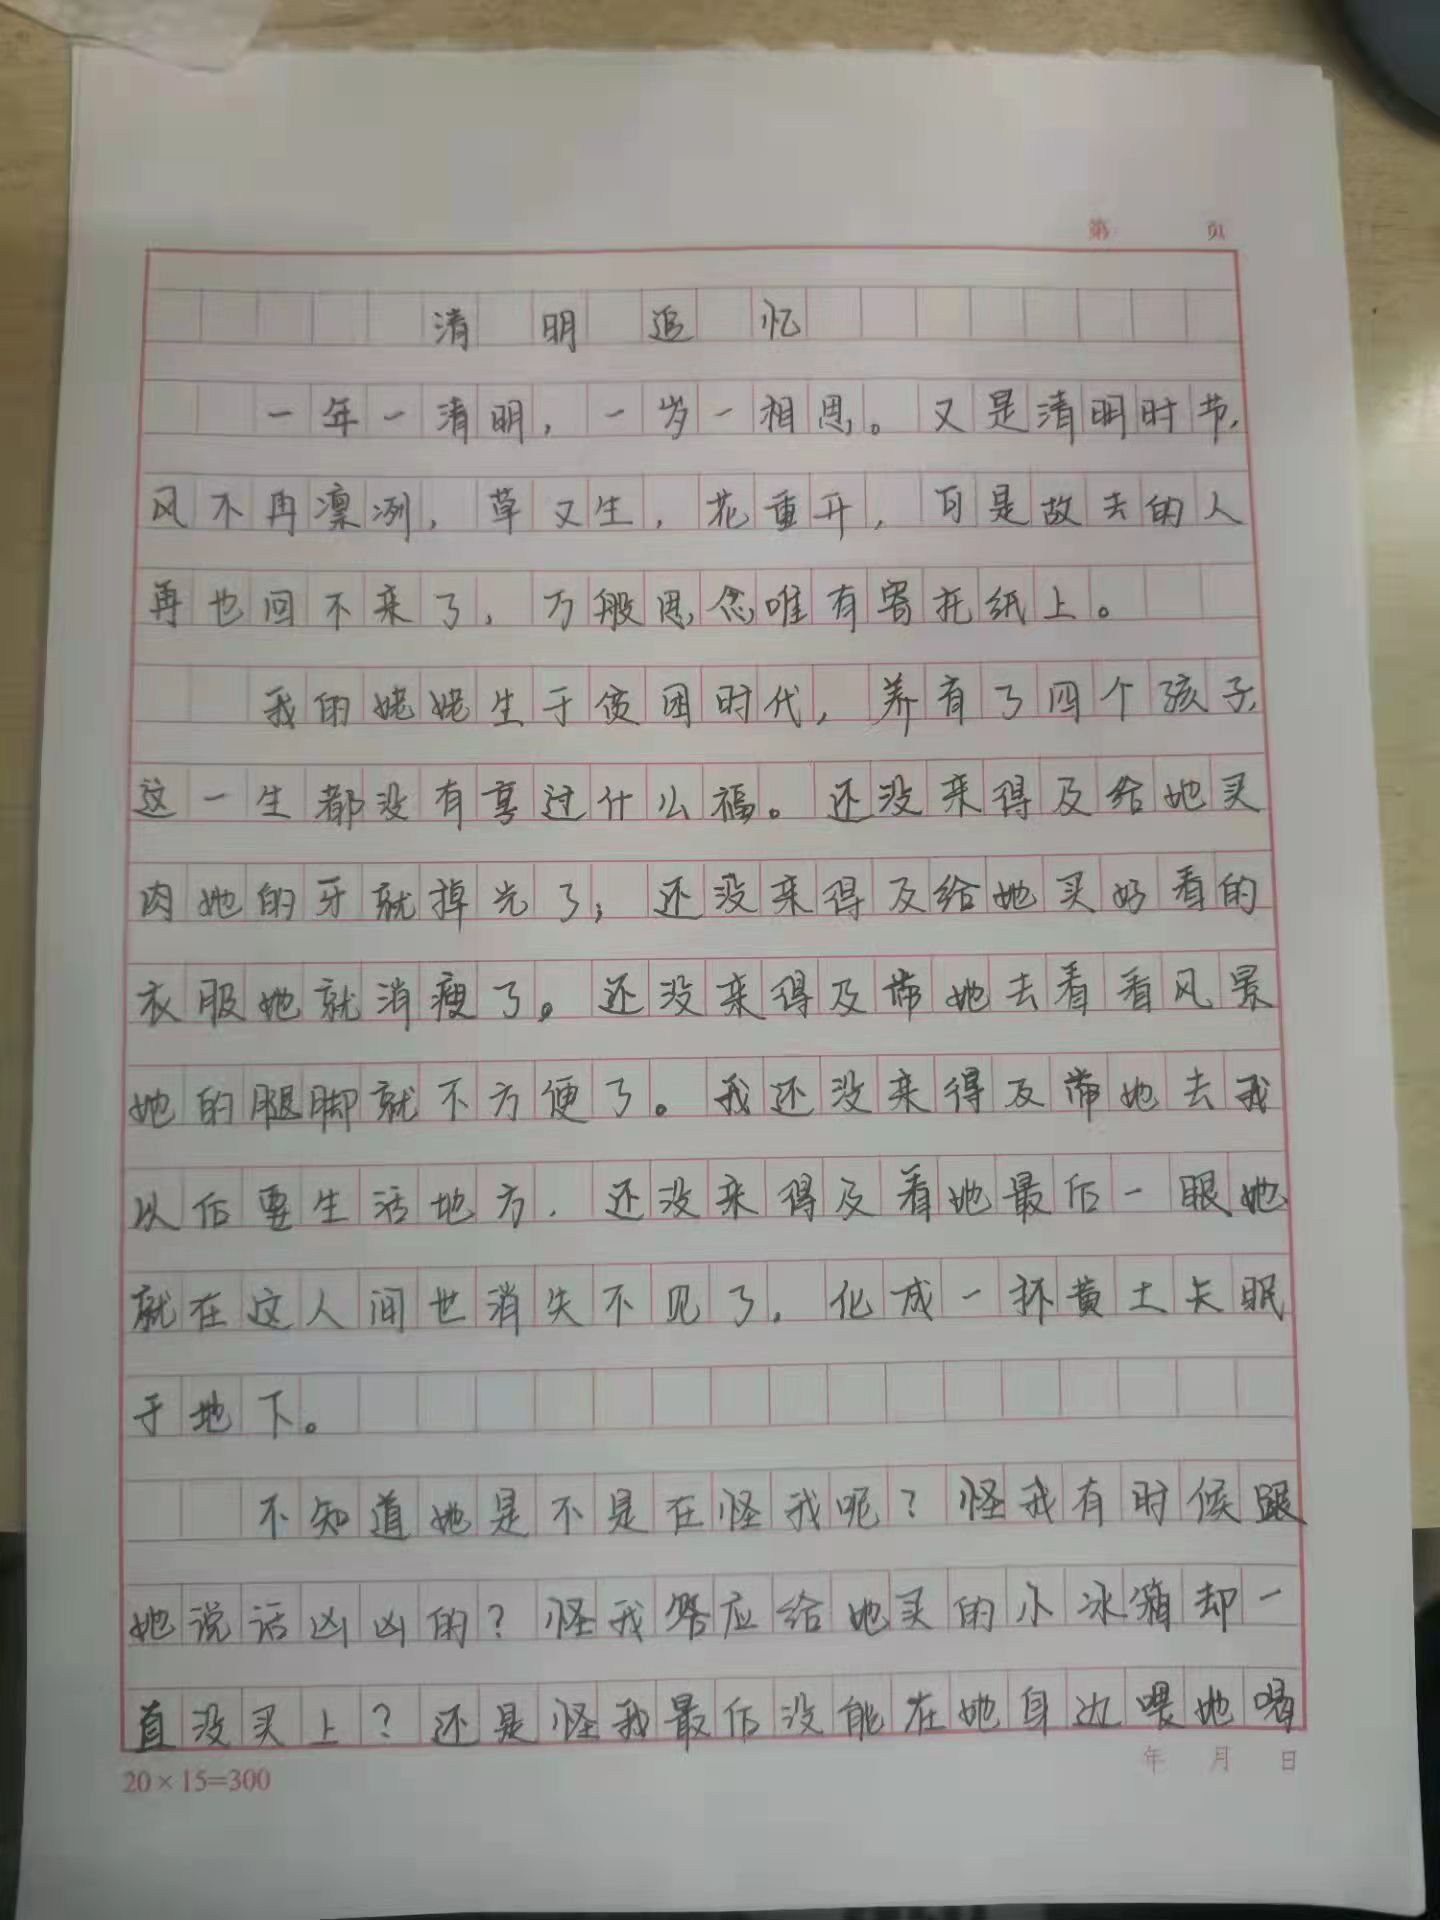 第 页
清明追忆
一年一清明，一岁一相思。又是清明时节，
风不再凛冽，草又生，花重开，可是故去的人
再也回不来了，万般思念唯有寄托纸上。
我的姥姥生于贫困时代，养有了四个孩子，
这一生都没有享过什么福。还没来得及给她买
肉她的牙就掉光了；还没来得及给她买好看的
衣服她就消瘦了。还没来得及带她去看看风景
她的腿脚就不方便了。我还没来得及带她去我
以后要生活地方，还没来得及看她最后一眼她
就在这人间世消失不见了，化成一抔黄土长眠
于地下。
不知道她是不是在怪我呢？怪我有时候跟
她说话凶凶的？怪我答应给她买的小冰箱却一
直没买上？还是怪我最后没能在她身边喂她喝
20×15=300
年 月 日